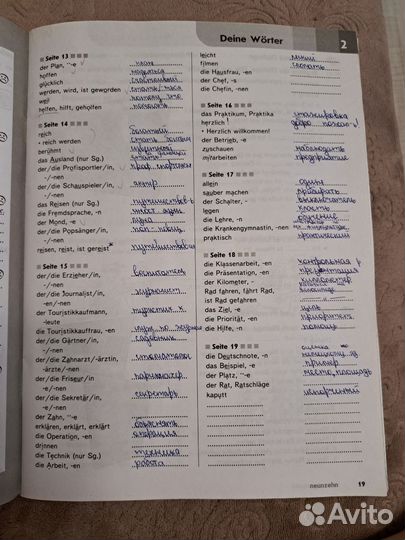 Deine Wörter
2
Seite 13
der Plan, ¨-e план
hoffen надеяться
glücklich счастливый
werden, wird, ist geworden
weil потому что
helfen, hilft, geholfen помогать
Seite 14
reich богатый
• reich werden
berühmt
das Ausland (nur Sg.)
der/die Profisportler/in,
-/-nen
der/die Schauspieler/in, актёр
-/-nen
das Reisen (nur Sg.)
die Fremdsprache, -n
der Mond, -e луна
der/die Popsänger/in, поп-певец
-/-nen
reisen, reist, ist gereist* путешествовать
Seite 15
der/die Erzieher/in, воспитатель
-/-nen
der/die Journalist/in, журналист
-en/-nen
der Touristikkaufmann,
-leute
die Touristikkauffrau, -en
der/die Gärtner/in, садовник
-/-nen
der/die Zahnarzt/-ärztin, стоматолог
-ärzte/-nen
der/die Friseur/in, парикмахер
-e/-nen
der/die Sekretär/in, секретарь
-e/-nen
der Zahn, ¨-e
erklären, erklärt, erklärt объяснять
die Operation, -en операция
drinnen
die Technik (nur Sg.) техника
die Arbeit, -en работа
leicht лёгкий
filmen снимать
die Hausfrau, -en
der Chef, -s
die Chefin, -nen
Seite 16
das Praktikum, Praktika стажировка
herzlich
• Herzlich willkommen! добро
der Betrieb, -e
zuschauen наблюдать
mitarbeiten
Seite 17
allein один
sauber machen прибирать
der Schalter, - выключатель
legen класть
die Lehre, -n обучение
die Krankengymnastin, -nen
praktisch практический
Seite 18
die Klassenarbeit, -en контрольная р
die Präsentation, -en презентация
der Kilometer, - километр
Rad fahren, fährt Rad,
ist Rad gefahren
das Ziel, -e цель
die Priorität, -en приоритет
die Hilfe, -n помощь
Seite 19
die Deutschnote, -n оценка по
das Beispiel, -e пример
der Platz, ¨-e место, площадь
der Rat, Ratschläge
kaputt испорченный
neunzehn 19
Avito